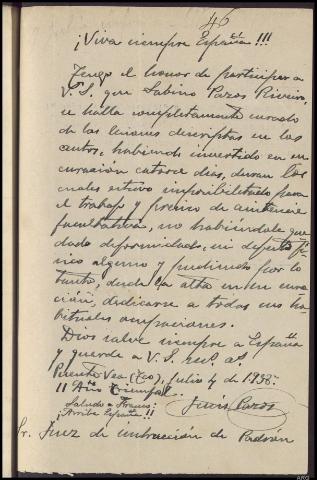 46
¡Viva siempre España!!!
Tengo el honor de participar a
V. S. que Sabino Pazos Riveiro,
se halla completamente curado
de las lesiones descriptas en los
autos, habiendo invertido en su
curación catorce dias, duran los
cuales estuvo imposibilitado para
el trabajo y preciso de asistencia
facultativa, no habiéndole que
dado deformidad, ni defecto fí-
sico alguno y pudiendo por lo
tanto, desde la alta en su cura
ción, dedicarse a todas sus ha-
bituales ocupaciones.
Dios salve siempre a España
y guarde a V. S. as.
Puente Vea, Julio 4 de 1938.
II Año Triunfal.
Saludo a Franco:
¡Arriba España!!
Luis Pazos
Sr. Juez de instrucción de Padrón